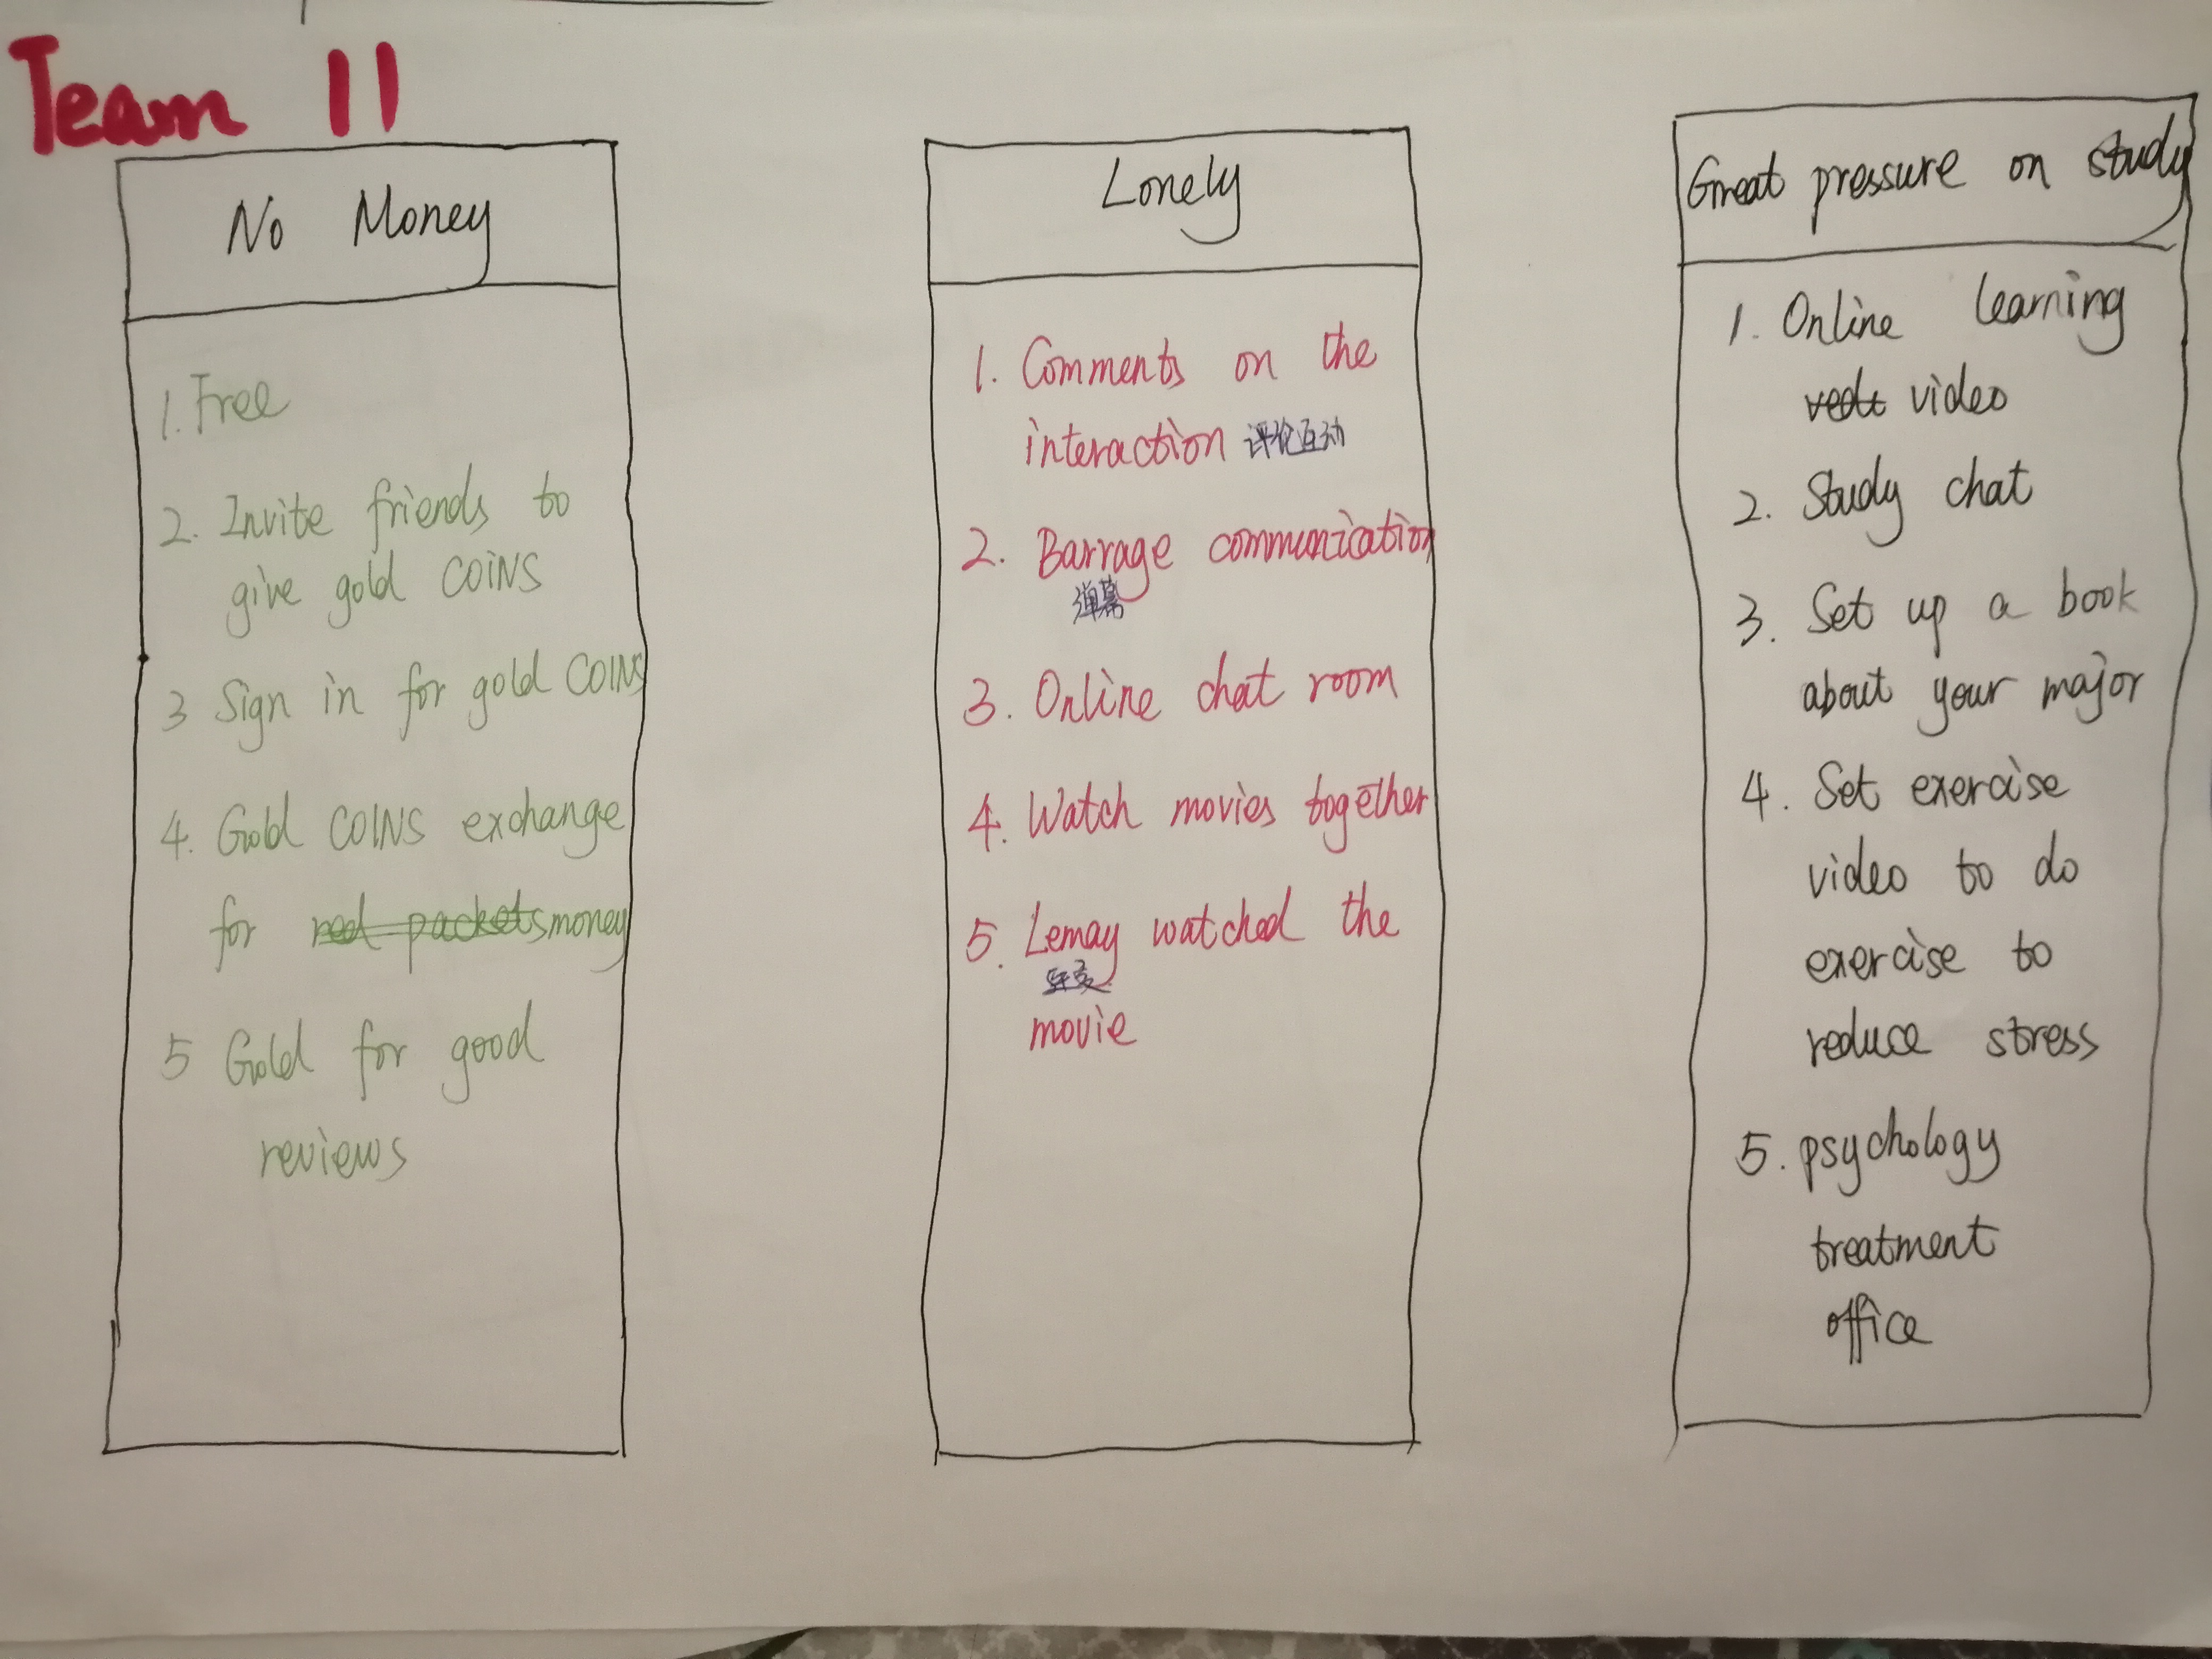 Team 11
No Money
1. Free
2. Invite friends to
give gold COINS
3 Sign in for gold COINS
4. Gold COINS exchange
for red packets money
5 Gold for good
reviews
Lonely
1. Comments on the
interaction 评论互动
2. Barrage communication
弹幕
3. Online chat room
4. Watch movies together
5. Lemay watched the
movie
Great pressure on study
1. Online learning
video
2. Study chat
3. Set up a book
about your major
4. Set exercise
video to do
exercise to
reduce stress
5. psychology
treatment
office